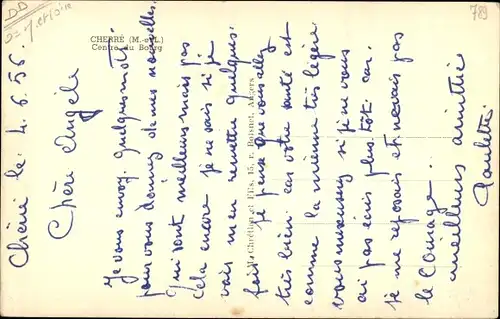 DD
789
CHERRÉ (M.-et-L.)
Centre du Bourg
Chérré le. 4. 6. 56.
Chère Angèle
Je vous envoy. quelques mots.
pour vous donnez de mes nouvelles.
qui sont meilleurs mais pas
cela encore je ne sais si je
vais m'en remettre quelques.
fois je pense que vous allez
très bien. car votre santé est
comme la mienne très légère.
vous m'excusez si je ne vous
ai pas écris plus. tôt. car.
je me reposais et n'avais pas
le Courage..
meilleurs amitiés
Paulette.
Chrétien et Fils, 15, r. Boisnet, Angers